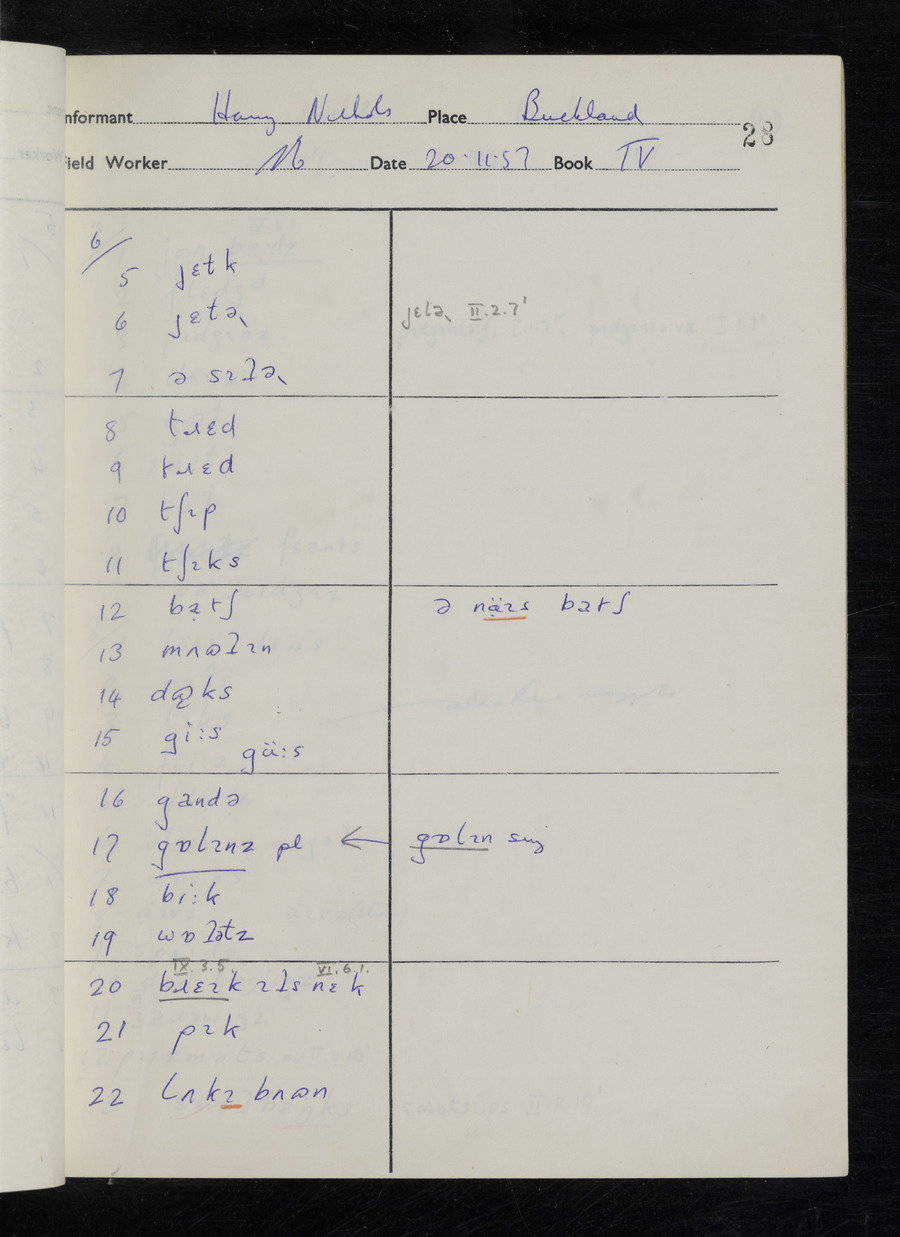 nformant Harry Nichols Place Buckland
28
ield Worker Date 20·11·57 Book IV
6/
5 jɛtk
6 jɛtə˞ jɛlə˞ II.2.7'
7 ə sɪɫə˞
8 tɹɛd
9 tɹɛd
10 tʃɪp
11 tʃɪks
12 bætʃ ə näɪs bætʃ
13 mʌʊɫɪn
14 dʊks
15 gi:s
gü:s
16 gandə
17 gɒlɪnz pl ← gɒlɪn sing
18 bi:k
19 wɒɫətz
IX.3.5 VI.6.1.
20 bɹɛɪk ɪɫs nɛk
21 pɪk
22 lʌkɪ bʌʊn